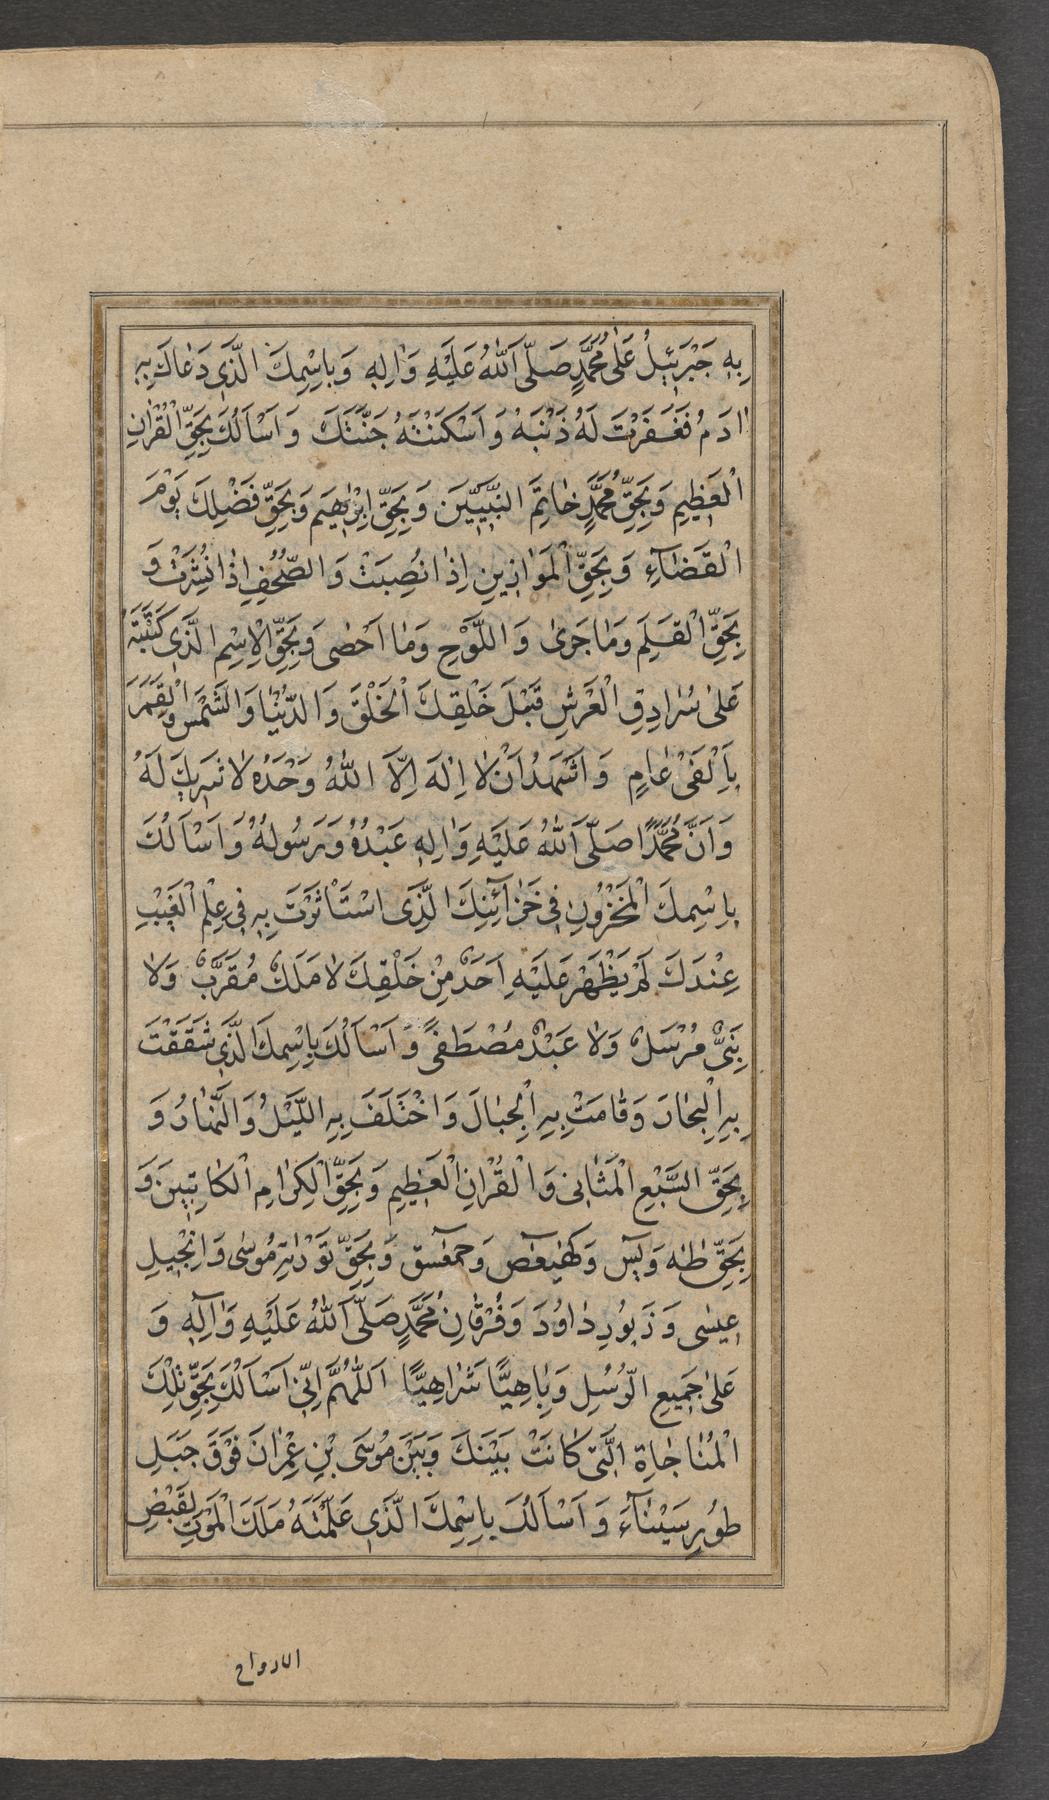 بِهِ جَبْرَئِيلُ عَلىٰ مُحَمَّدٍ صَلَّى اَللّٰهُ عَلَيْهِ وَاٰلِهِ وَبِاسْمِكَ الَّذَى دَعٰاكَ بِهِ
اٰدَمُ فَغَفَرْتَ لَهُ ذَنْبَهُ وَاَسْكَنْتَهُ جَنَّتَكَ وَاَسْاَلُكَ بِحَقِّ الْقُرْاٰنِ
الْعَظِيمِ وَبِحَقِّ مُحَمَّدٍ خٰاتِمَ النَّبِيِّينَ وَبِحَقِّ اِبْرٰهِيَم وَبِحَقِّ فَضْلِكَ يَوْمَ
الْقَضٰآءِ وَبِحَقِّ الْمَوٰازِينِ اِذٰا نُصِبَتْ وَالصُّحُفِ اِذٰا نُشِرَتْ وَ
بِحَقِّ الْقَلَمِ وَمٰا جَرىٰ وَاللَّوْحِ وَمٰا اَحْصٰى وَبِحَقِّ الْاِسْمِ الَّذَى كَتَبْتَهُ
عَلىٰ سُرٰادِقِ الْعَرْشِ قَبْلَ خَلْقِكَ الْخَلْقَ وَالدُّنْيٰا وَالشَّمْسَ وَالْقَمَرَ
بِاَلْفَىْ عٰامٍ وَاَشْهَدُ اَنْ لٰا اِلٰهَ اِلَّا اللّٰهُ وَحْدَهُ لٰا شَرِيكَ لَهُ
وَاَنَّ مُحَمَّدًا صَلَّى اَللّٰهُ عَلَيْهِ وَاٰلِهِ عَبْدُهُ وَرَسُولُهُ وَاَسْاَلُكَ
بِاسْمِكَ الْمَخْزُونِ فِى خَزٰآئِنِكَ الَّذَى اسْتَاْثَرْتَ بِهِ فِى عِلْمِ الْغَيْبِ
عِنْدَكَ لَمْ يَظْهَرْ عَلَيْهِ اَحَدٌ مِنْ خَلْقِكَ لٰا مَلَكٌ مُقَرَّبٌ وَلٰا
نَبِىٌّ مُرْسَلٌ وَلٰا عَبْدٌ مُصْطَفًى وَاَسْاَلُكَ بِاسْمِكَ الَّذَى شَقَقْتَ
بِهِ الْبِحٰارَ وَقٰامَتْ بِهِ الْجِبٰالَ وَاخْتَلَفَ بِهِ اللَّيْلُ وَالنَّهٰارُ وَ
بِحَقِّ السَّبْعِ الْمَثٰانِى وَالْقُرْاٰنِ الْعَظِيمِ وَبِحَقِّ الْكِرٰامِ الْكٰاتِبِينَ وَ
بِحَقِّ طٰهٰ وَيٰسٓ وَكٓهٰيٰعٓصٓ وَحٰمٓعٓسٓقٓ وَبِحَقِّ تَوْرٰيةِ مُوسٰى وَاِنْجِيلِ
عِيسٰى وَزَبُورِ دٰاوُدَ وَفُرْقٰانِ مُحَمَّدٍ صَلَّى اَللّٰهُ عَلَيْهِ وَاٰلِهِ وَ
عَلىٰ جَمِيعِ الرُّسُلِ وَبِاٰهِيًّا شَرٰاهِيًّا اَللّٰهُمَّ اِنِّى اَسْاَلُكَ بِحَقِّ تِلْكَ
الْمُنٰاجٰاةِ الَّتِى كٰانَتْ بَيْنَكَ وَبَيْنَ مُوسَى بْنِ عِمْرٰانَ فَوْقَ جَبَلِ
طُورِ سَيْنٰآءَ وَاَسْاَلُكَ بِاسْمِكَ الَّذَى عَلَّمْتَهُ مَلَكَ الْمَوْتِ لِقَبْضِ
الارواح